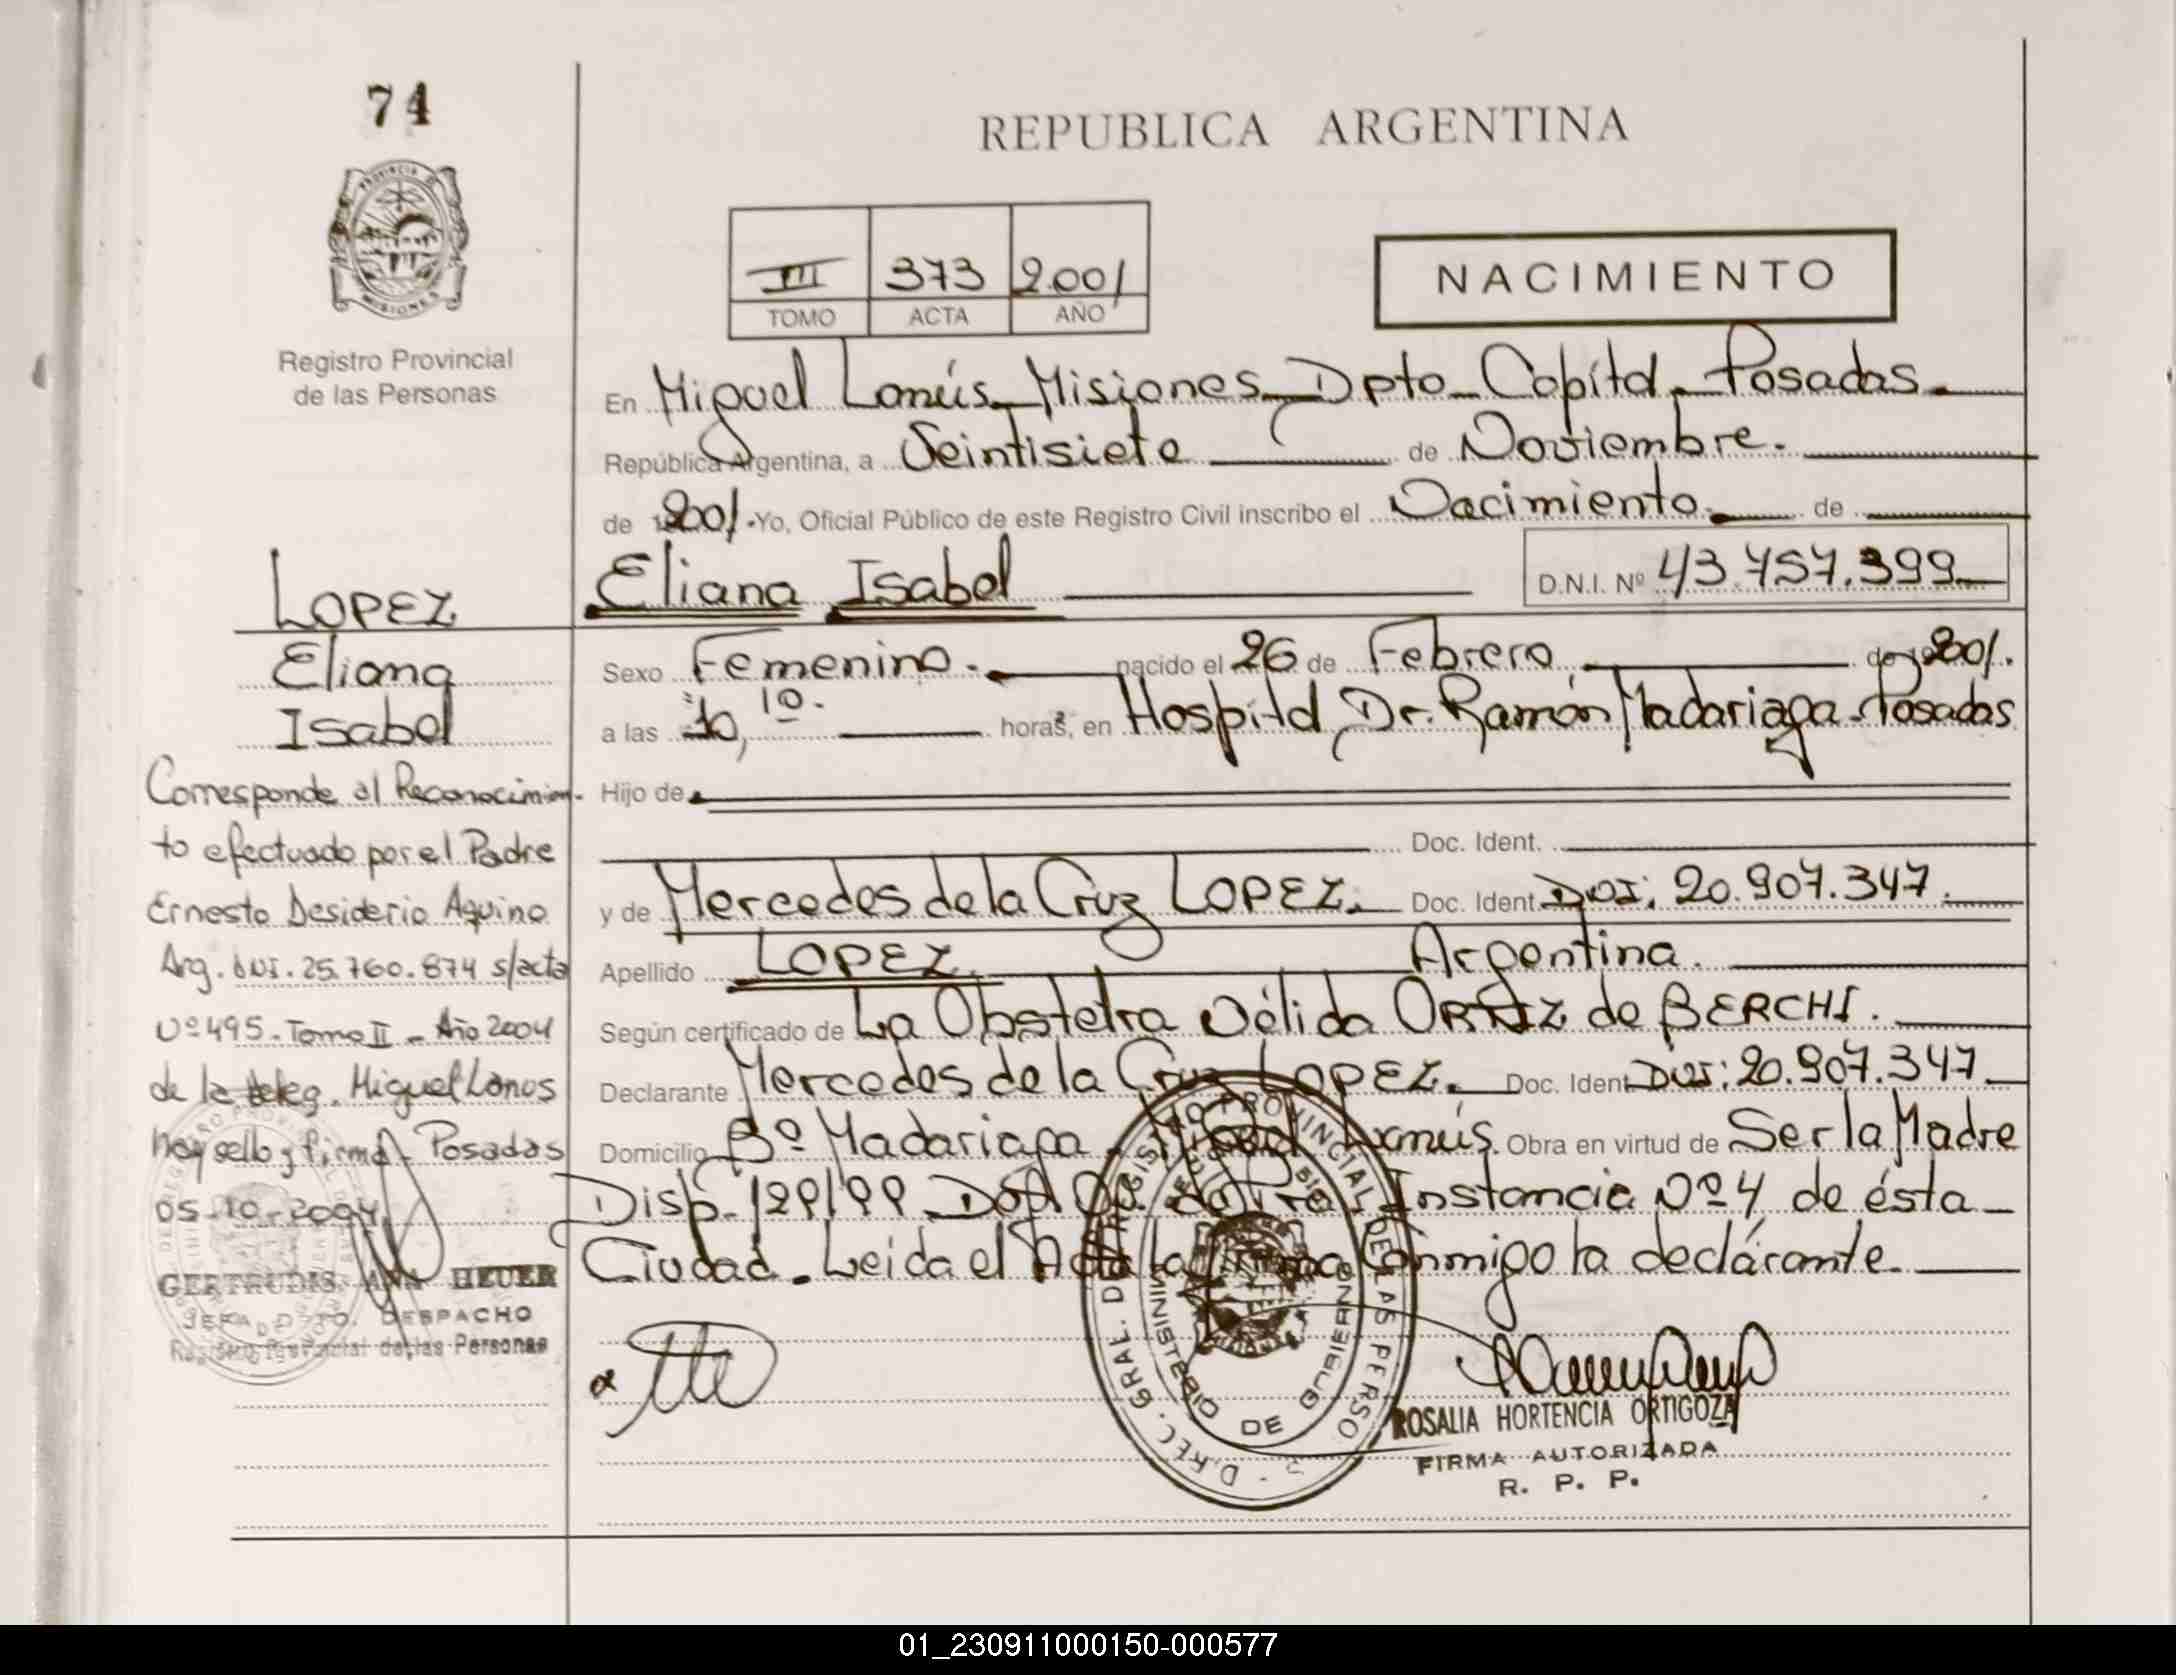 74
REPUBLICA ARGENTINA
PROVINCIA DE MISIONES
Registro Provincial
de las Personas
III 373 2001
TOMO ACTA AÑO
NACIMIENTO
En Miguel Lanús Misiones Dpto Capital Posadas
República Argentina, a Veintisiete de Noviembre.
de 2001. Yo, Oficial Público de este Registro Civil inscribo el Nacimiento de
Eliana Isabel D.N.I. Nº 43.757.399
Sexo Femenino. nacido el 26 de Febrero de 2001.
a las 10,10. horas, en Hospital Dr. Ramón Madariaga - Posadas
Hijo de
Doc. Ident.
y de Mercedes de la Cruz LOPEZ. Doc. Ident. DNI: 20.907.347.
Apellido LOPEZ Argentina.
Según certificado de La Obstetra Nélida ORTIZ de BERCHI.
Declarante Mercedes de la Cruz LOPEZ. Doc. Ident. DNI: 20.907.347.
Domicilio Bº Madariaga - Miguel Lanús. Obra en virtud de Ser la Madre
Disp. 129/99 Instancia Nº 4 de ésta
Ciudad. Leida el Acta la firma Conmigo la declárante.
LOPEZ
Eliana
Isabel
Corresponde al Reconocimien-
to efectuado por el Padre
Ernesto Desiderio Aquino
Arg. DNI. 25.760.874 s/acta
Nº 495. Tomo II - Año 2004
de la deleg. Miguel Lanus
hay sello y firma. Posadas
05-10-2004
GERTRUDIS ANA HEUER
JEFA DPTO. DESPACHO
Registro Provincial de las Personas
DIREC. GRAL. DEL REGISTRO PROVINCIAL DE LAS PERSONAS
MINISTERIO DE GOBIERNO
ROSALIA HORTENCIA ORTIGOZA
FIRMA AUTORIZADA
R. P. P.
01_230911000150-000577